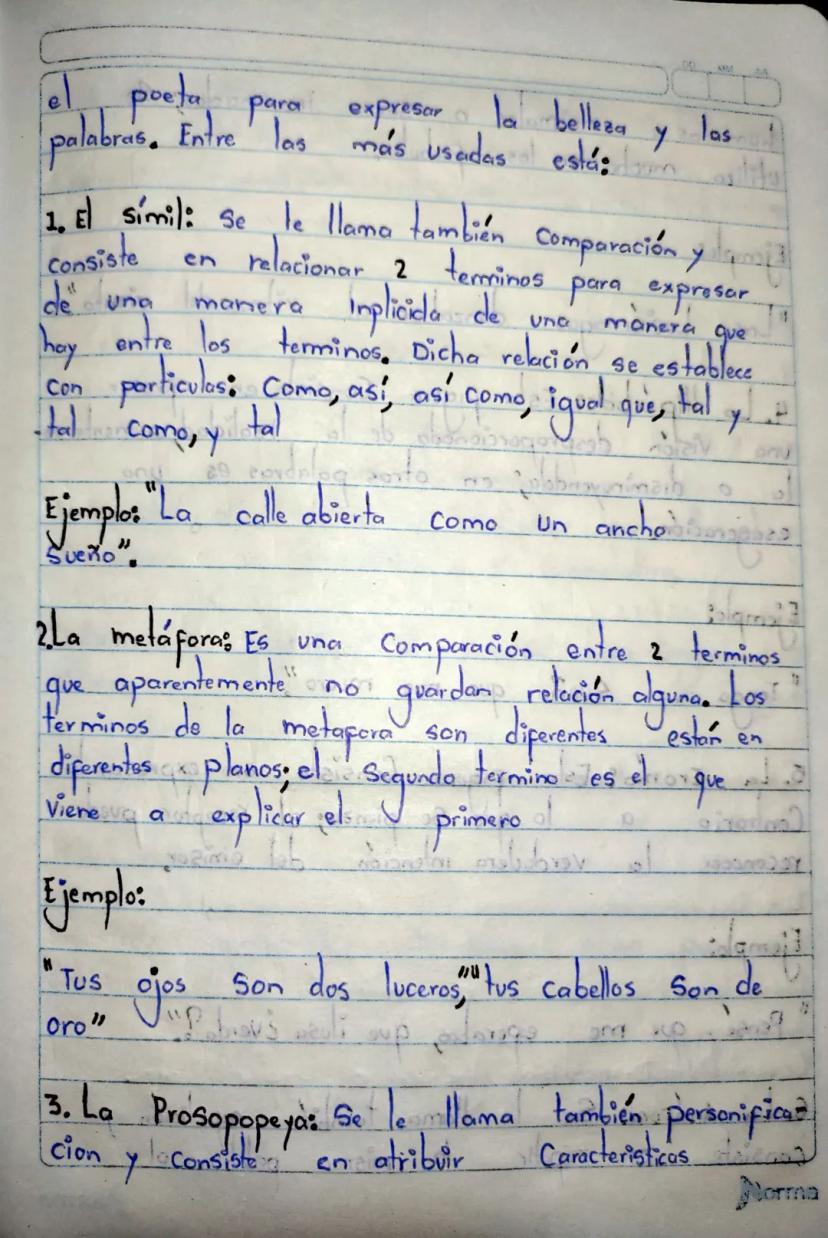 el poeta para expresar la belleza y las
palabras. Entre las más usadas está:
1. El símil: Se le llama también Comparación y
consiste en relacionar 2 terminos para expresar
de una manera inplicida de una manera que
hay entre los terminos. Dicha relación se establece
con particulas: Como, así, así como, igual que, tal y
tal como, y tal
Ejemplo: "La calle abierta como un ancho
Sueño".
2. La metáfora: Es una Comparación entre 2 terminos
que aparentemente no guardan relación alguna. Los
terminos de la metafora son diferentes están en
diferentes planos; el Segundo termino es el que
viene a explicar el primero
Ejemplo:
"Tus ojos son dos luceros," "tus cabellos son de
oro"
3. La Prosopopeya: Se le llama también personifica-
cion y consiste en atribuir Caracteristicas
Norma